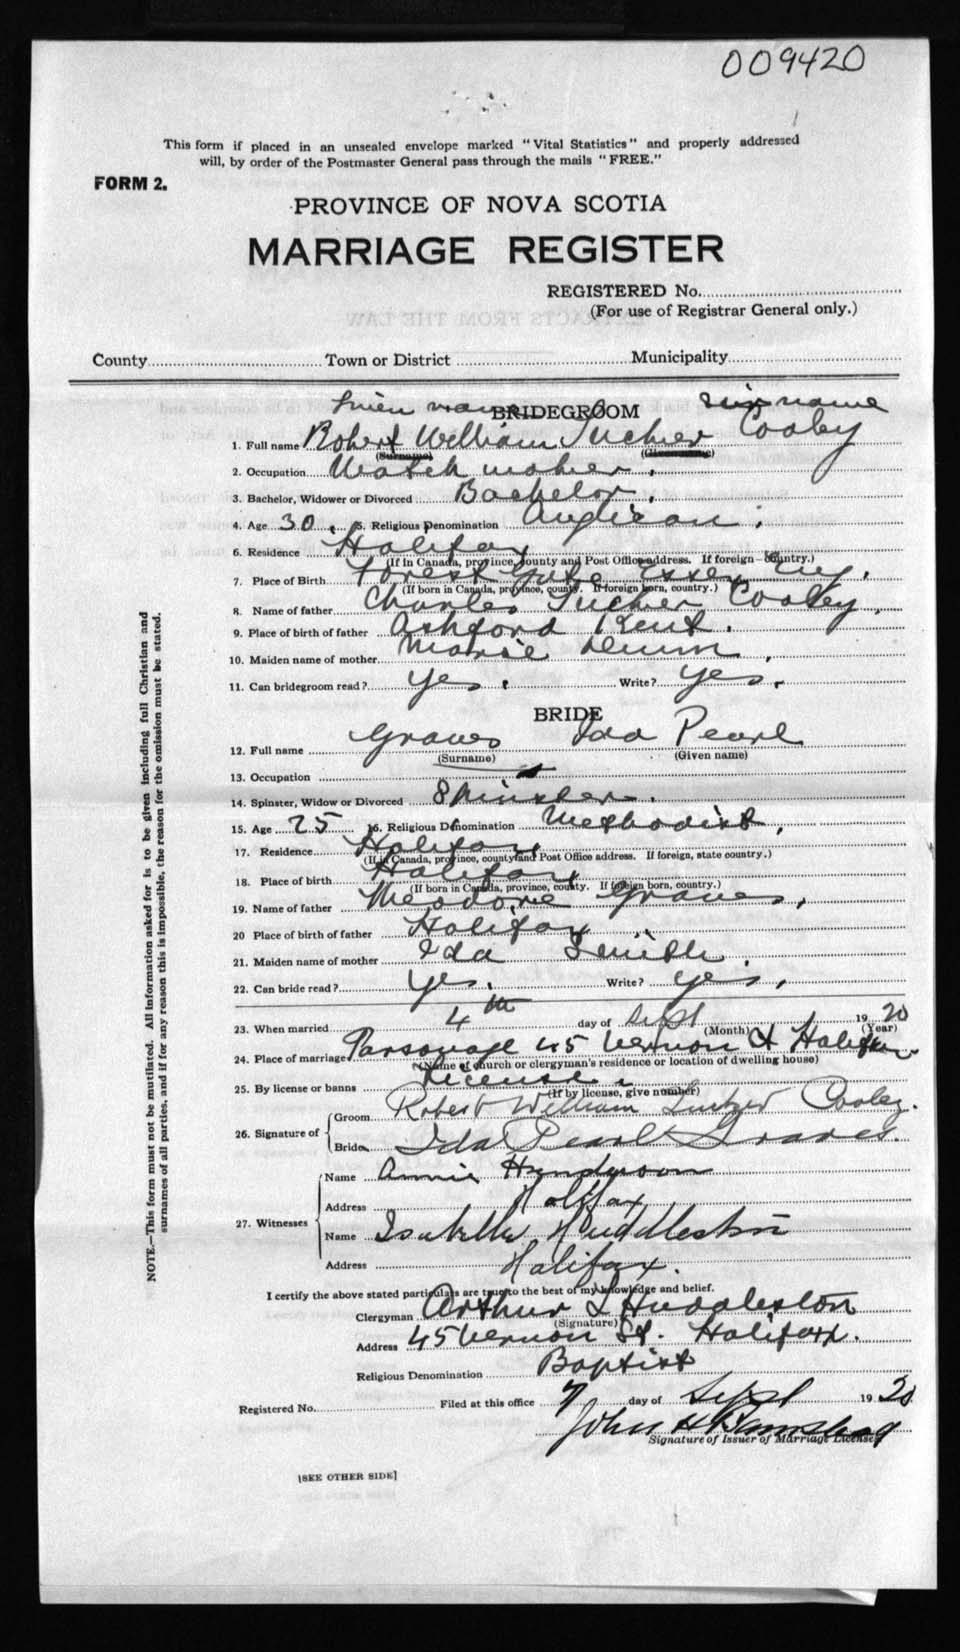 009420
This form if placed in an unsealed envelope marked "Vital Statistics" and properly addressed
will, by order of the Postmaster General pass through the mails "FREE."
FORM 2.
PROVINCE OF NOVA SCOTIA
MARRIAGE REGISTER
REGISTERED No.
(For use of Registrar General only.)
County Town or District Municipality
BRIDEGROOM
name
1. Full name Robert William Tucker Cooley
(Surname) (Given name)
2. Occupation Watch maker.
3. Bachelor, Widower or Divorced Bachelor.
4. Age 30. 5. Religious Denomination Anglican.
6. Residence Halifax
(If in Canada, province, county and Post Office address. If foreign country.)
7. Place of Birth Forest Gate Essex Eng.
(If born in Canada, province, county. If foreign born, country.)
8. Name of father Charles Tucker Cooley.
9. Place of birth of father Ashford Kent.
10. Maiden name of mother Marie Dunn.
11. Can bridegroom read? yes. Write? yes.
BRIDE
12. Full name Graves Ida Pearl
(Surname) (Given name)
13. Occupation
14. Spinster, Widow or Divorced Spinster.
15. Age 25 16. Religious Denomination Methodist.
17. Residence Halifax
(If in Canada, province, county and Post Office address. If foreign, state country.)
18. Place of birth Halifax
(If born in Canada, province, county. If foreign born, country.)
19. Name of father Graves.
20 Place of birth of father Halifax
21. Maiden name of mother Ida Smith.
22. Can bride read? yes. Write? yes.
23. When married 4th day of Sept 1920
(Month) (Year)
24. Place of marriage Parsonage 45 Vernon St Halifax
(Name of church or clergyman's residence or location of dwelling house)
25. By license or banns License.
(If by license, give number)
26. Signature of Groom Robert William Tucker Cooley.
Bride Ida Pearl Graves.
27. Witnesses Name Annie Henderson
Address Halifax
Name Isabella Huddleston
Address Halifax.
I certify the above stated particulars are true to the best of my knowledge and belief.
Clergyman Arthur Huddleston
(Signature)
Address 45 Vernon St. Halifax.
Religious Denomination Baptist
Registered No. Filed at this office 7 day of Sept 1920
John H
Signature of Issuer of Marriage License
[SEE OTHER SIDE]
NOTE.—This form must not be mutilated. All information asked for is to be given including full Christian and
surnames of all parties, and if for any reason this is impossible, the reason for the omission must be stated.